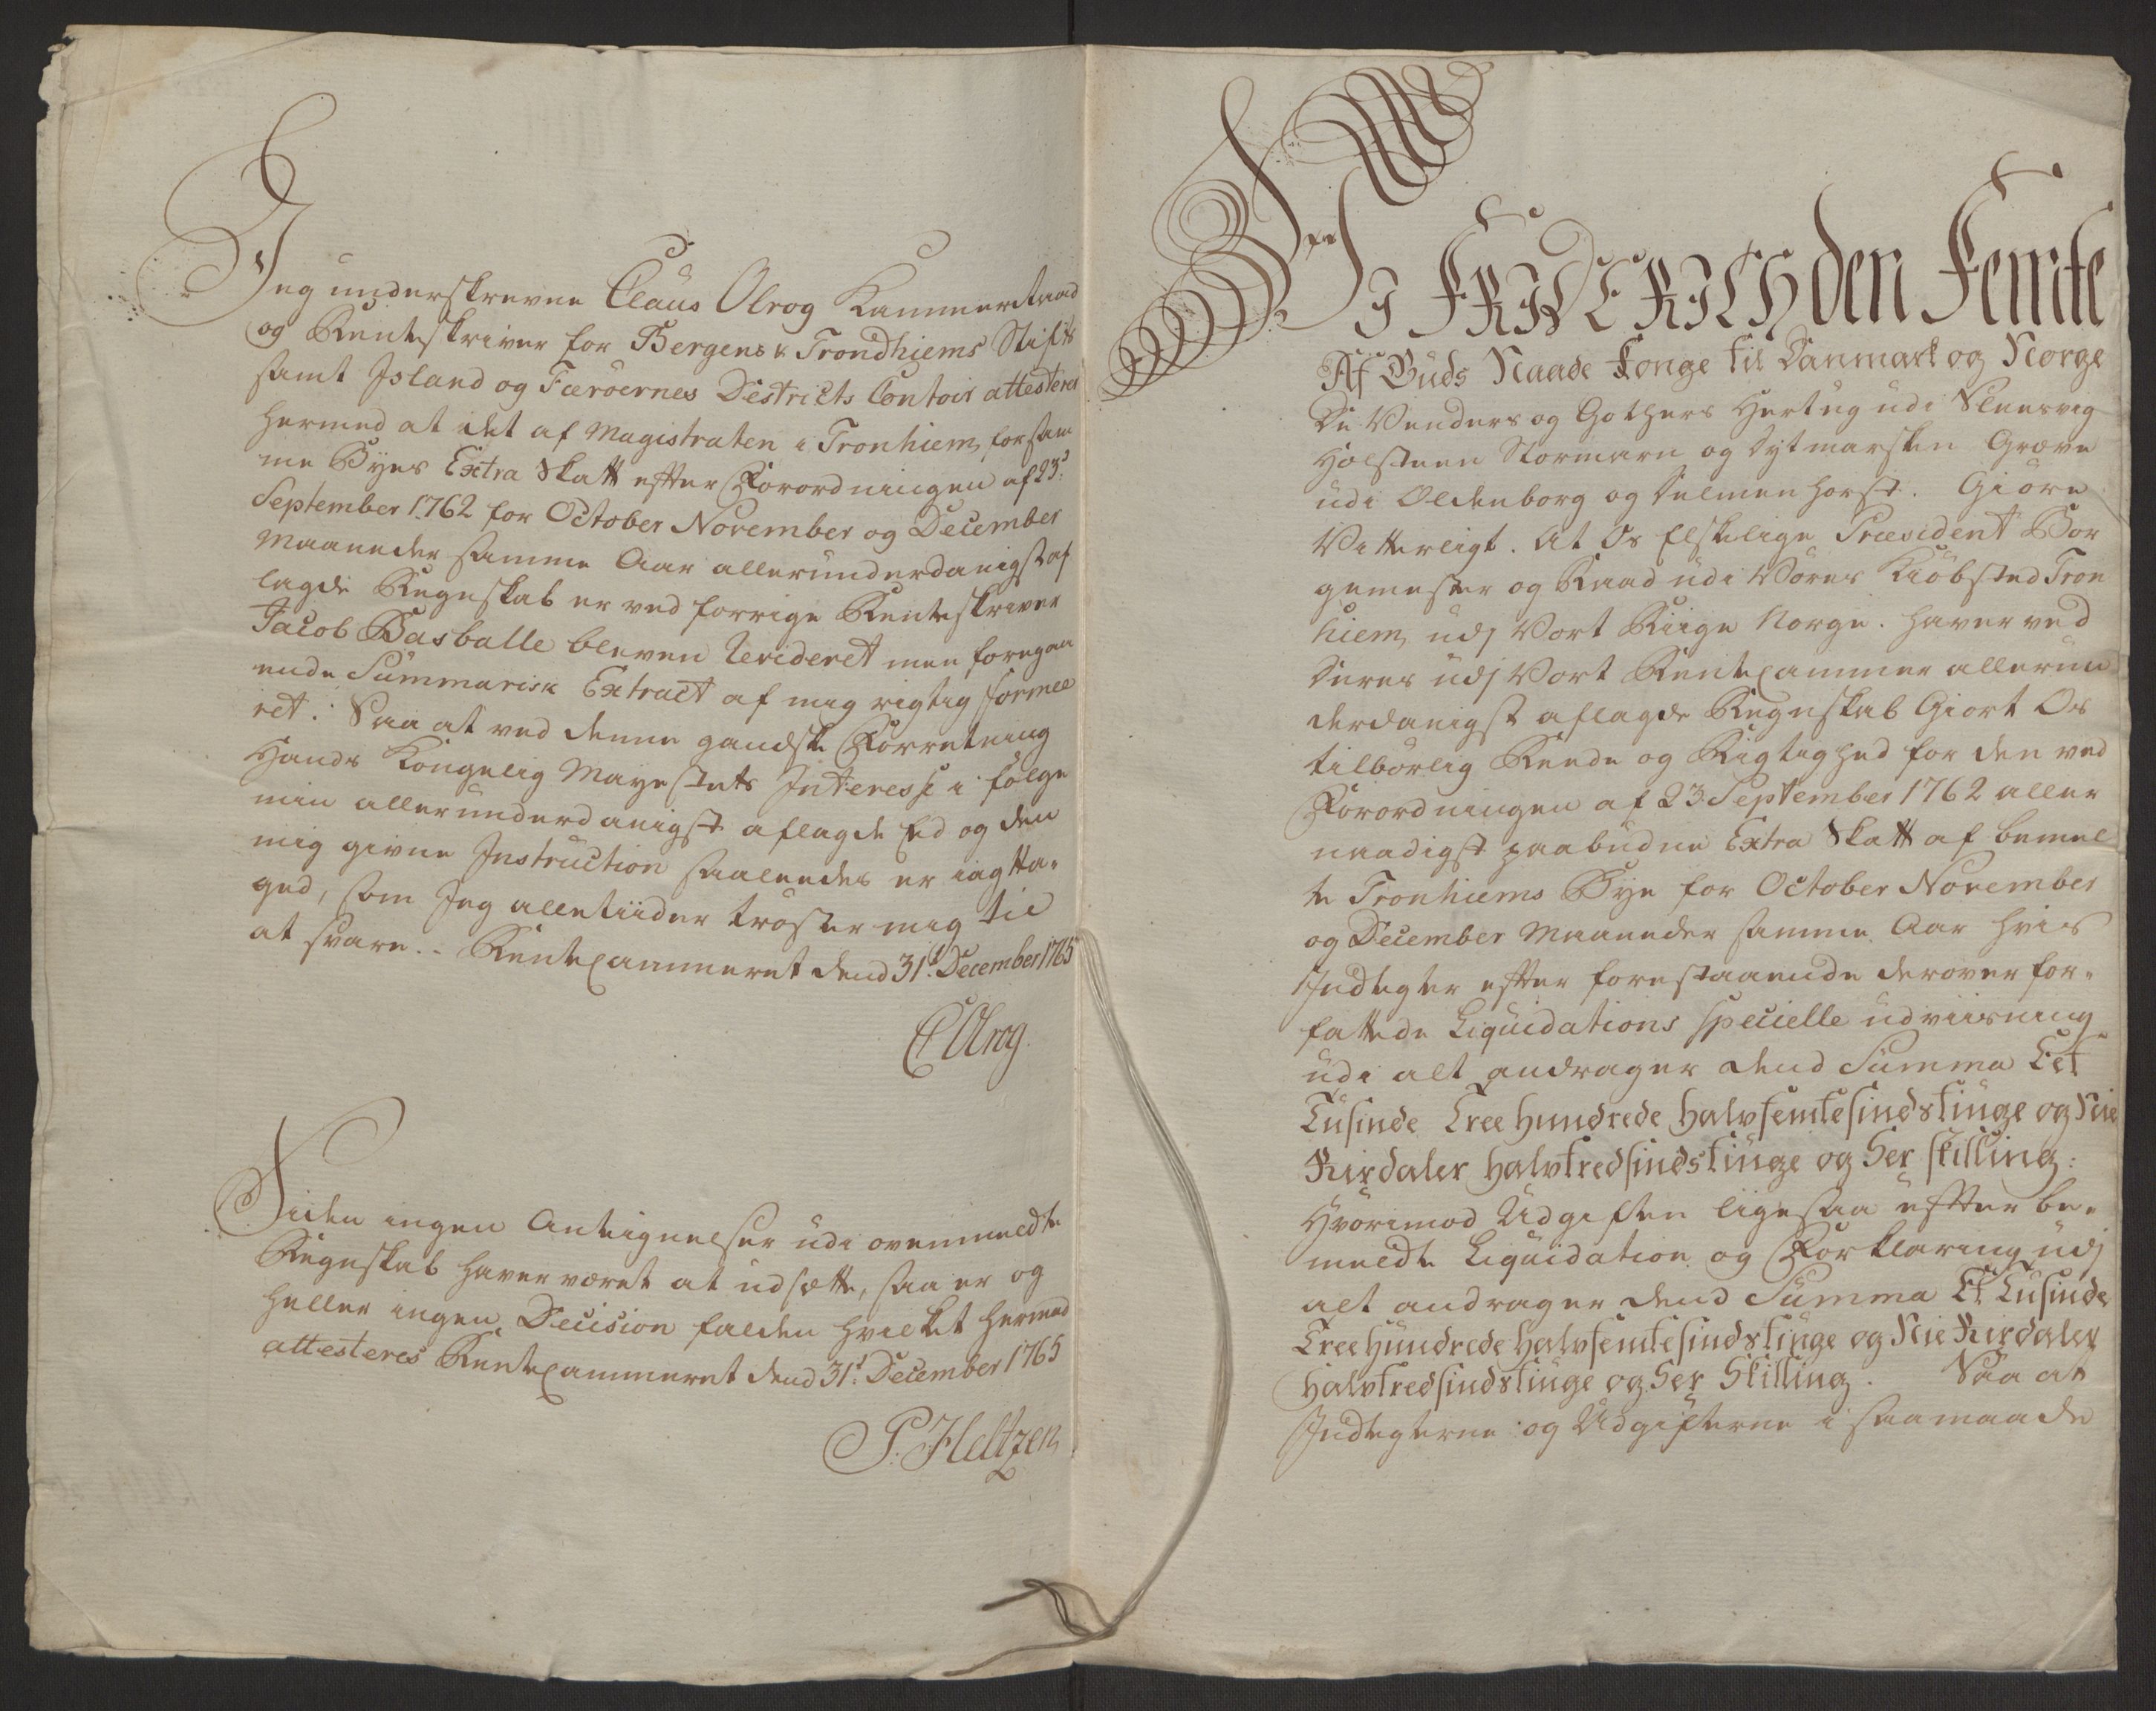 Jeg underskrevne Claus Olrog Kammerraad
og Renteskriver for Bergens & Trondhiems Stifts
samt Island og Færöernes Districts Contoir attesterer
hermed at det af Magistraten i Tronhiem for sam
me Byes Extra Skatt efter Forordningen af 23d
September 1762 for October November og December
Maaneder samme Aar allerunderdanigst af
lagde Regnskab er ved forrige Renteskriver
Jacob Basballe bleven Revideret men foregaa
ende Summarisk Extract af mig rigtig formee
ret. Saa at ved denne gandske Forretning
Hands Kongelig Mayestets Interesse i fölge
min allerunderdanigst aflagde Eed og den
mig givne Instruction saaledes er iagtta-
ged, som Jeg alletiider tröster mig til
at svare. - Rentecammeret dend 31t December 1765
COlrog.
Siden ingen Antegnelser udi ovenmeldte
Regnskab haver været at udsætte, saa er og
heller ingen Decision falden hvilket hermed
attesteres Rentecammeret dend 31t December 1765
P. Heltzen
Vi FRIDERICH den Femte
Af Guds Naade Konge til Danmark og Norge
De Venders og Gothers Hertug udi Slesvig
Holsteen Stormarn og Dytmarsken Greve
udi Oldenborg og Delmenhorst. Giöre
Vitterligt. At Os Elskelige Præsident Bor
gemester og Raad udi Vores Kiöbsted Tron
hiem udj Vort Riige Norge. haver ved
Deres udj Vort Rentecammer allerun
derdanigst aflagde Regnskab Giort Os
tilbörlig Reede og Rigtighed for den ved
Forordningen af 23 September 1762 aller
naadigst paabudne Extra Skatt af bemel
te Tronhiems Bye for October November
og December Maaneder samme Aar hvis
Indtegter efter forestaaende derover for-
fattede Liquidations specielle udviisning
udi alt andrager dend Summa Eet
Tusinde Tree hundrede halvfemtesindstiuge og Nie
Rixdaler halvtredsindstiuge og Sex skilling:
Hvorimod Udgiften ligesaa efter be-
meldte Liquidation og Forklaring udj
alt andrager dend Summa Et Tusinde
Tree Hundrede halvfemtesindstiuge og Nie Rixdaler
halvtredsindstiuge og Sex Skilling. Saa at
Indtegterne og Udgifterne i saamaade